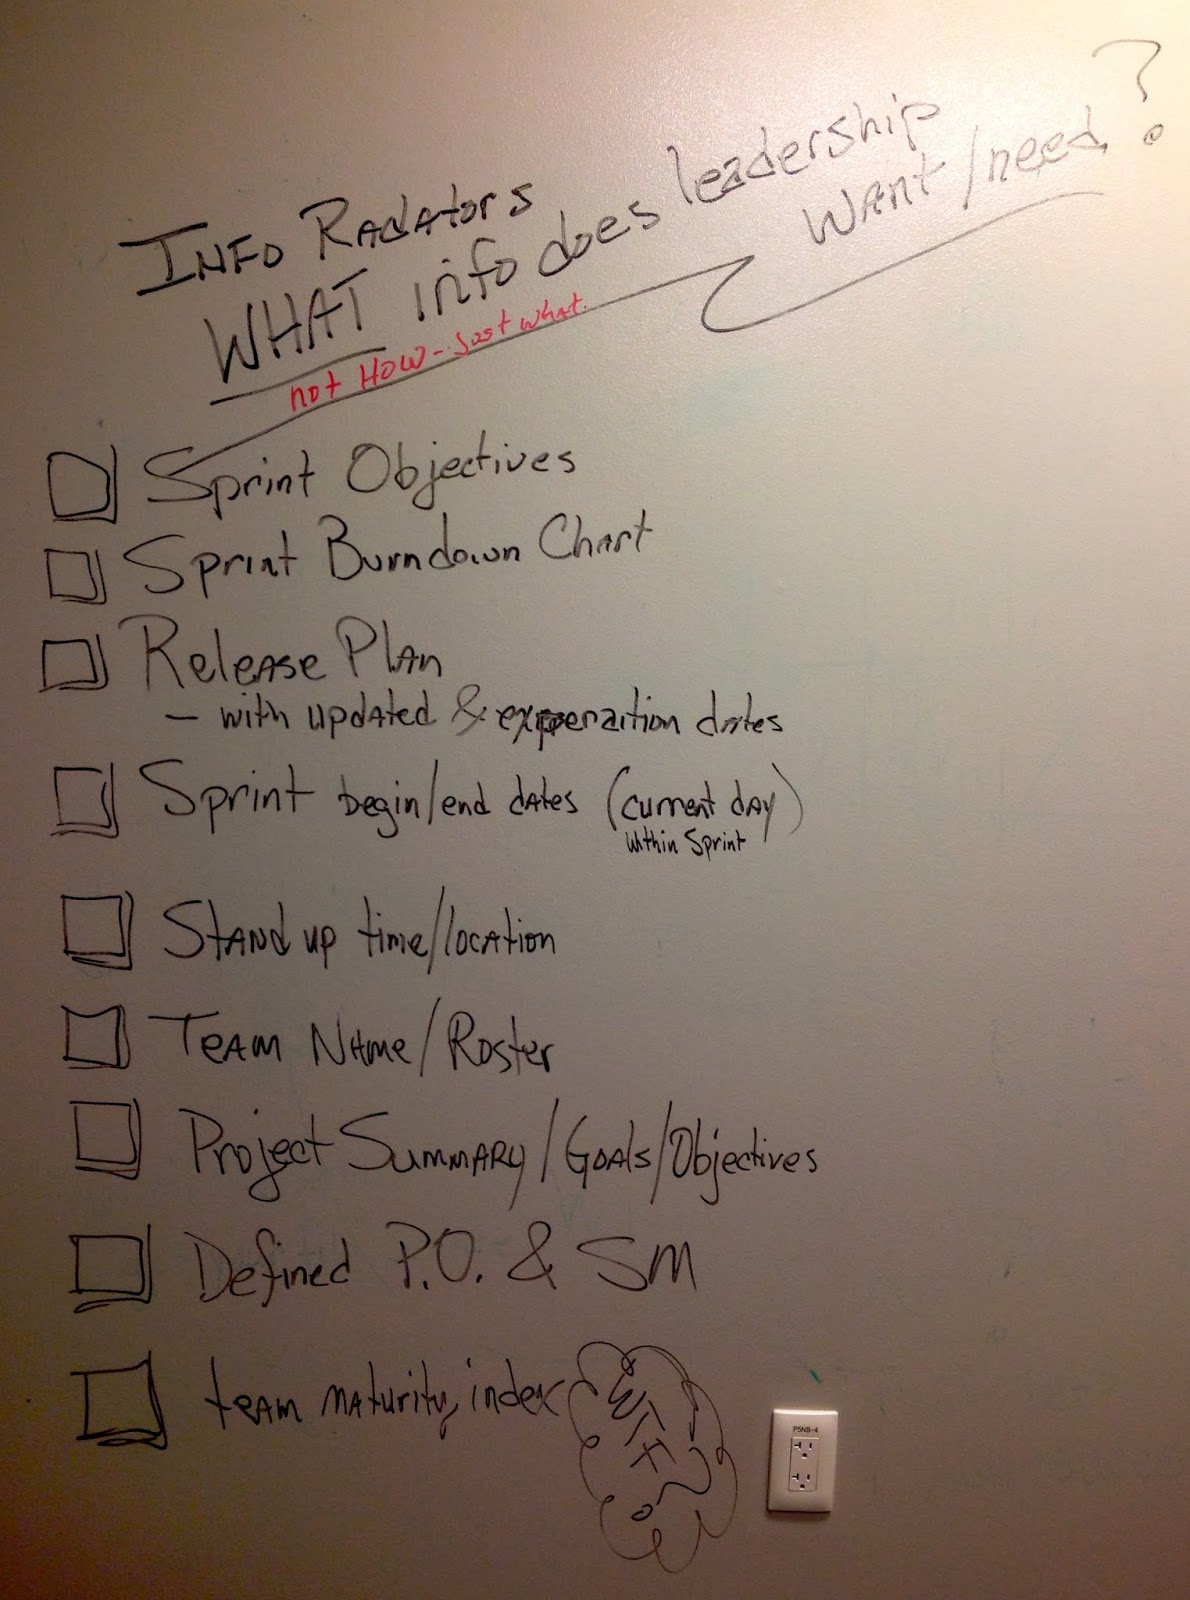 INFO RadiatorS
WHAT info does leadership
Want/need?
not HOW - Just what.
Sprint Objectives
Sprint Burndown Chart
Release Plan
- with updated & experaition dates
Sprint begin/end dates (current day)
within Sprint
Stand up time/location
Team Name/Roster
Project Summary/Goals/Objectives
Defined P.O. & SM
team maturity index
WTF?
P5NB-4